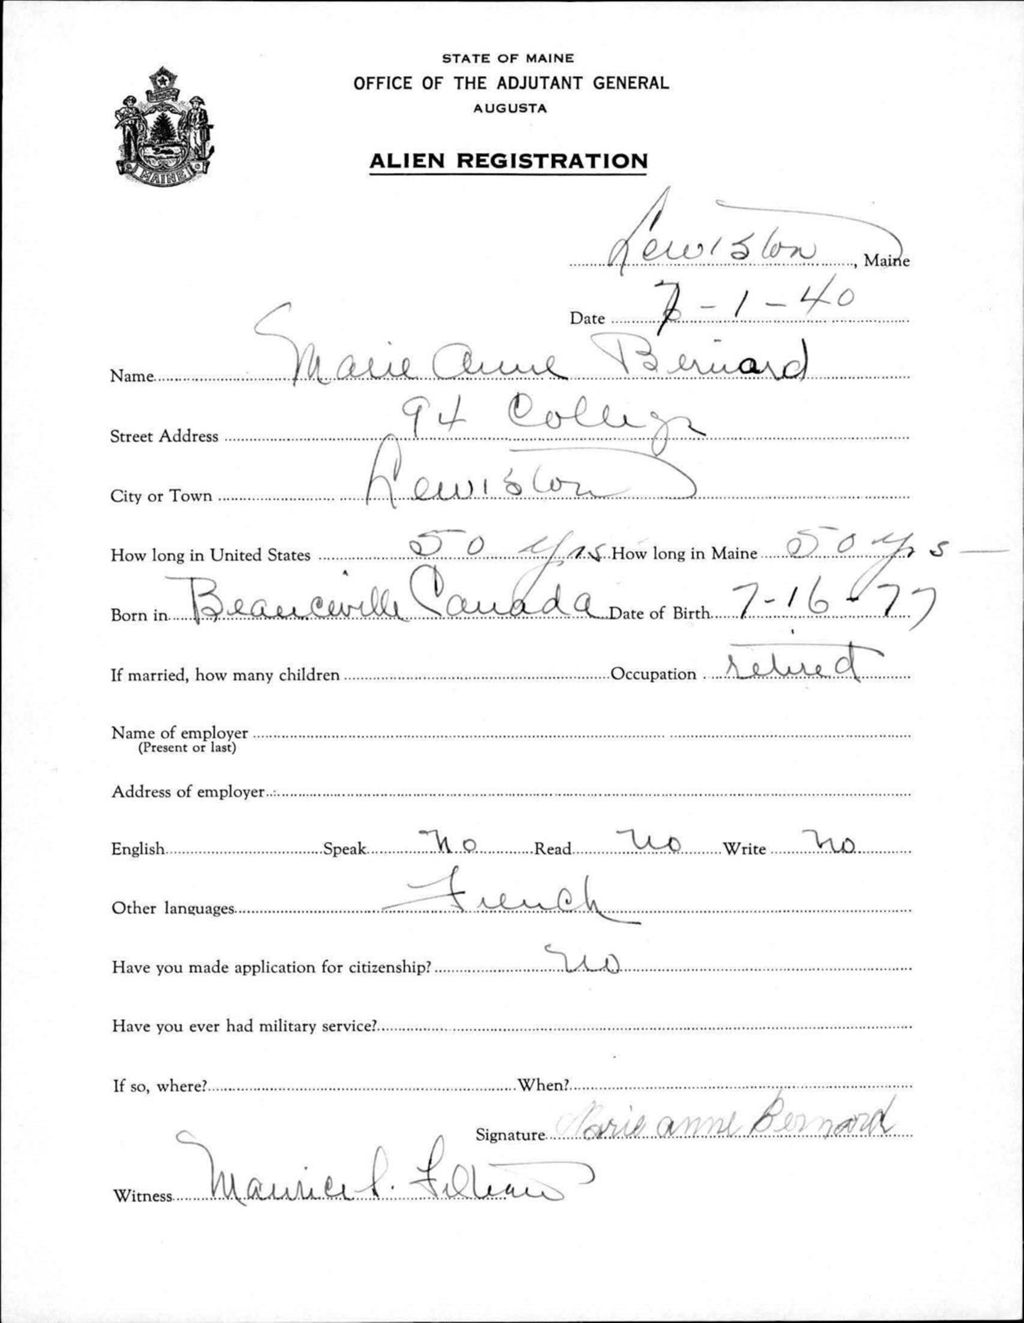 STATE OF MAINE
OFFICE OF THE ADJUTANT GENERAL
AUGUSTA
MAINE
ALIEN REGISTRATION
Lewiston, Maine
Date 7-1-40
Name Marie Anne Bernard
Street Address 94 College
City or Town Lewiston
How long in United States 50 yrs How long in Maine 50 yrs
Born in Beauceville Canada Date of Birth 7-16-77
If married, how many children Occupation retired
Name of employer
(Present or last)
Address of employer
English Speak No Read No Write No
Other languages French
Have you made application for citizenship? No
Have you ever had military service?
If so, where? When?
Signature Marie anne Bernard
Witness Maurice L.